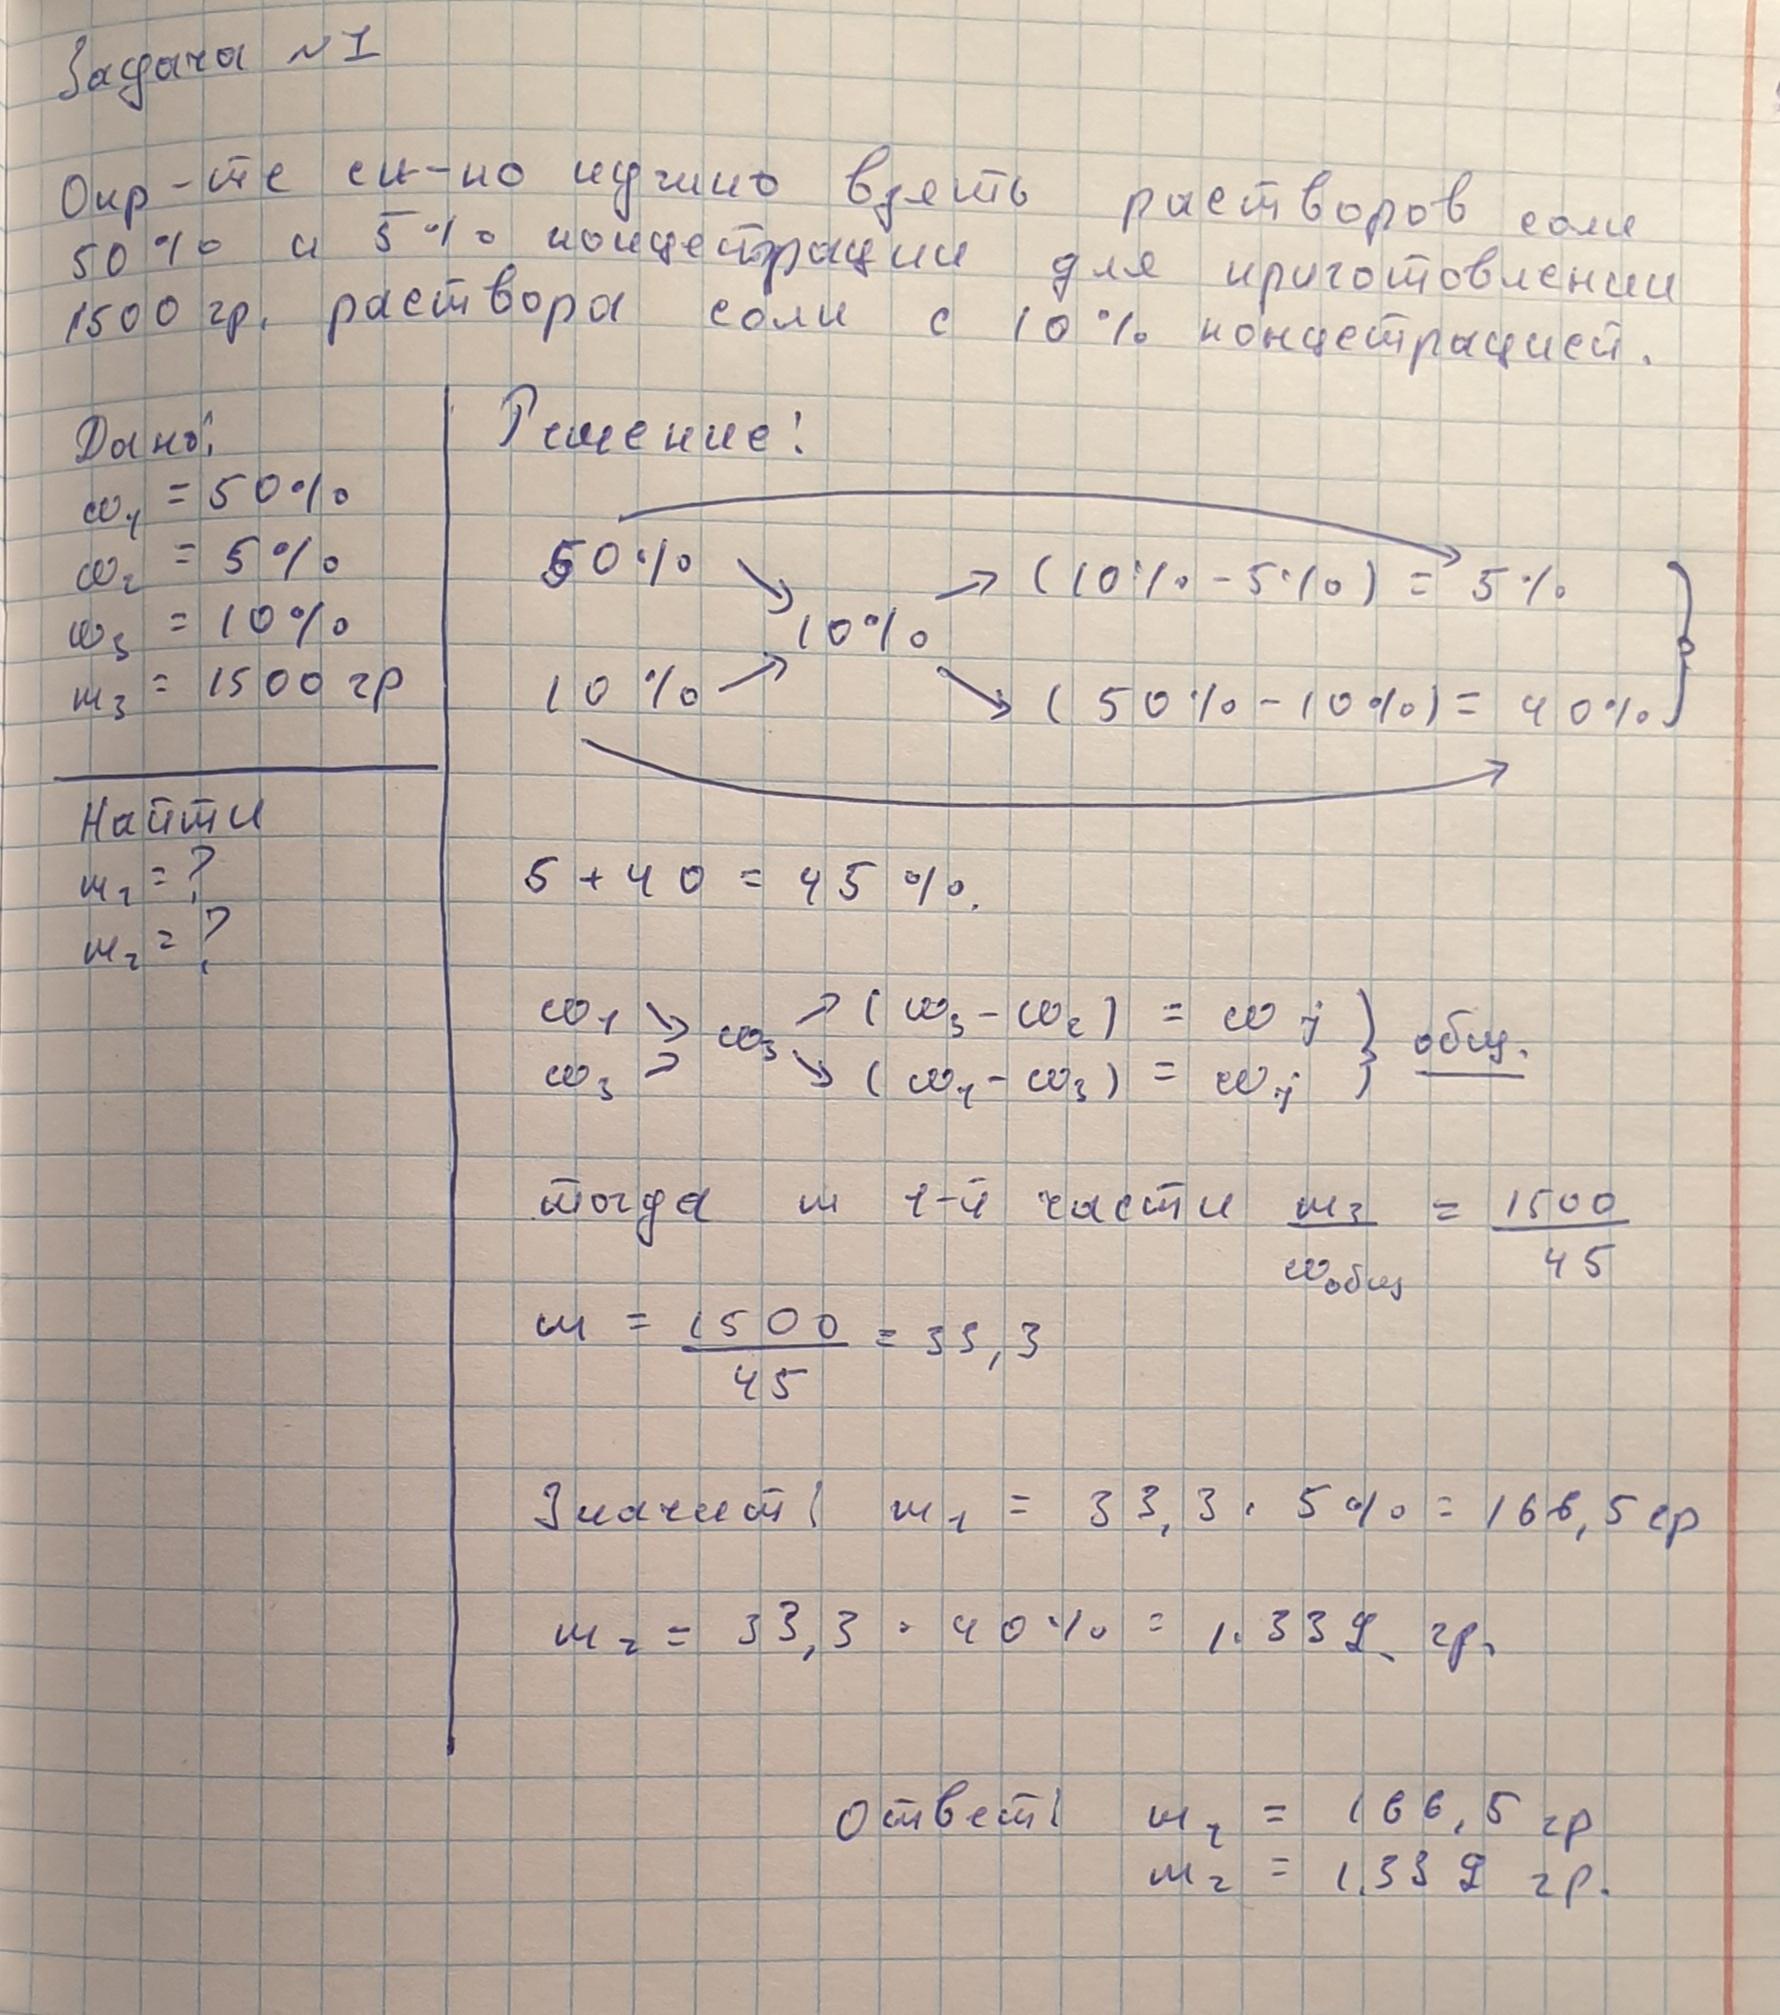 Задача №1
Опр-те ск-но нужно взять растворов соли
50% и 5% концетрации для приготовлении
1500 гр. раствора соли с 10% концетрацией.
Дано:
ω₁ = 50%
ω₂ = 5%
ω₃ = 10%
m₃ = 1500 гр
Найти
m₁ = ?
m₂ = ?
Решение:
50% ↘ ↗ (10% - 5%) = 5%
10%
10% ↗ ↘ (50% - 10%) = 40%
5 + 40 = 45%.
ω₁ ↘ ω₃ ↗ (ω₃ - ω₂) = ω
ω₃ ↗ ↘ (ω₁ - ω₃) = ω
} общ.
тогда m 1-й части m₃/ωобщ = 1500/45
m = 1500/45 = 33,3
Значит: m₁ = 33,3 · 5% = 166,5 гр
m₂ = 33,3 · 40% = 1.332 гр.
Ответ: m₁ = 166,5 гр
m₂ = 1.332 гр.